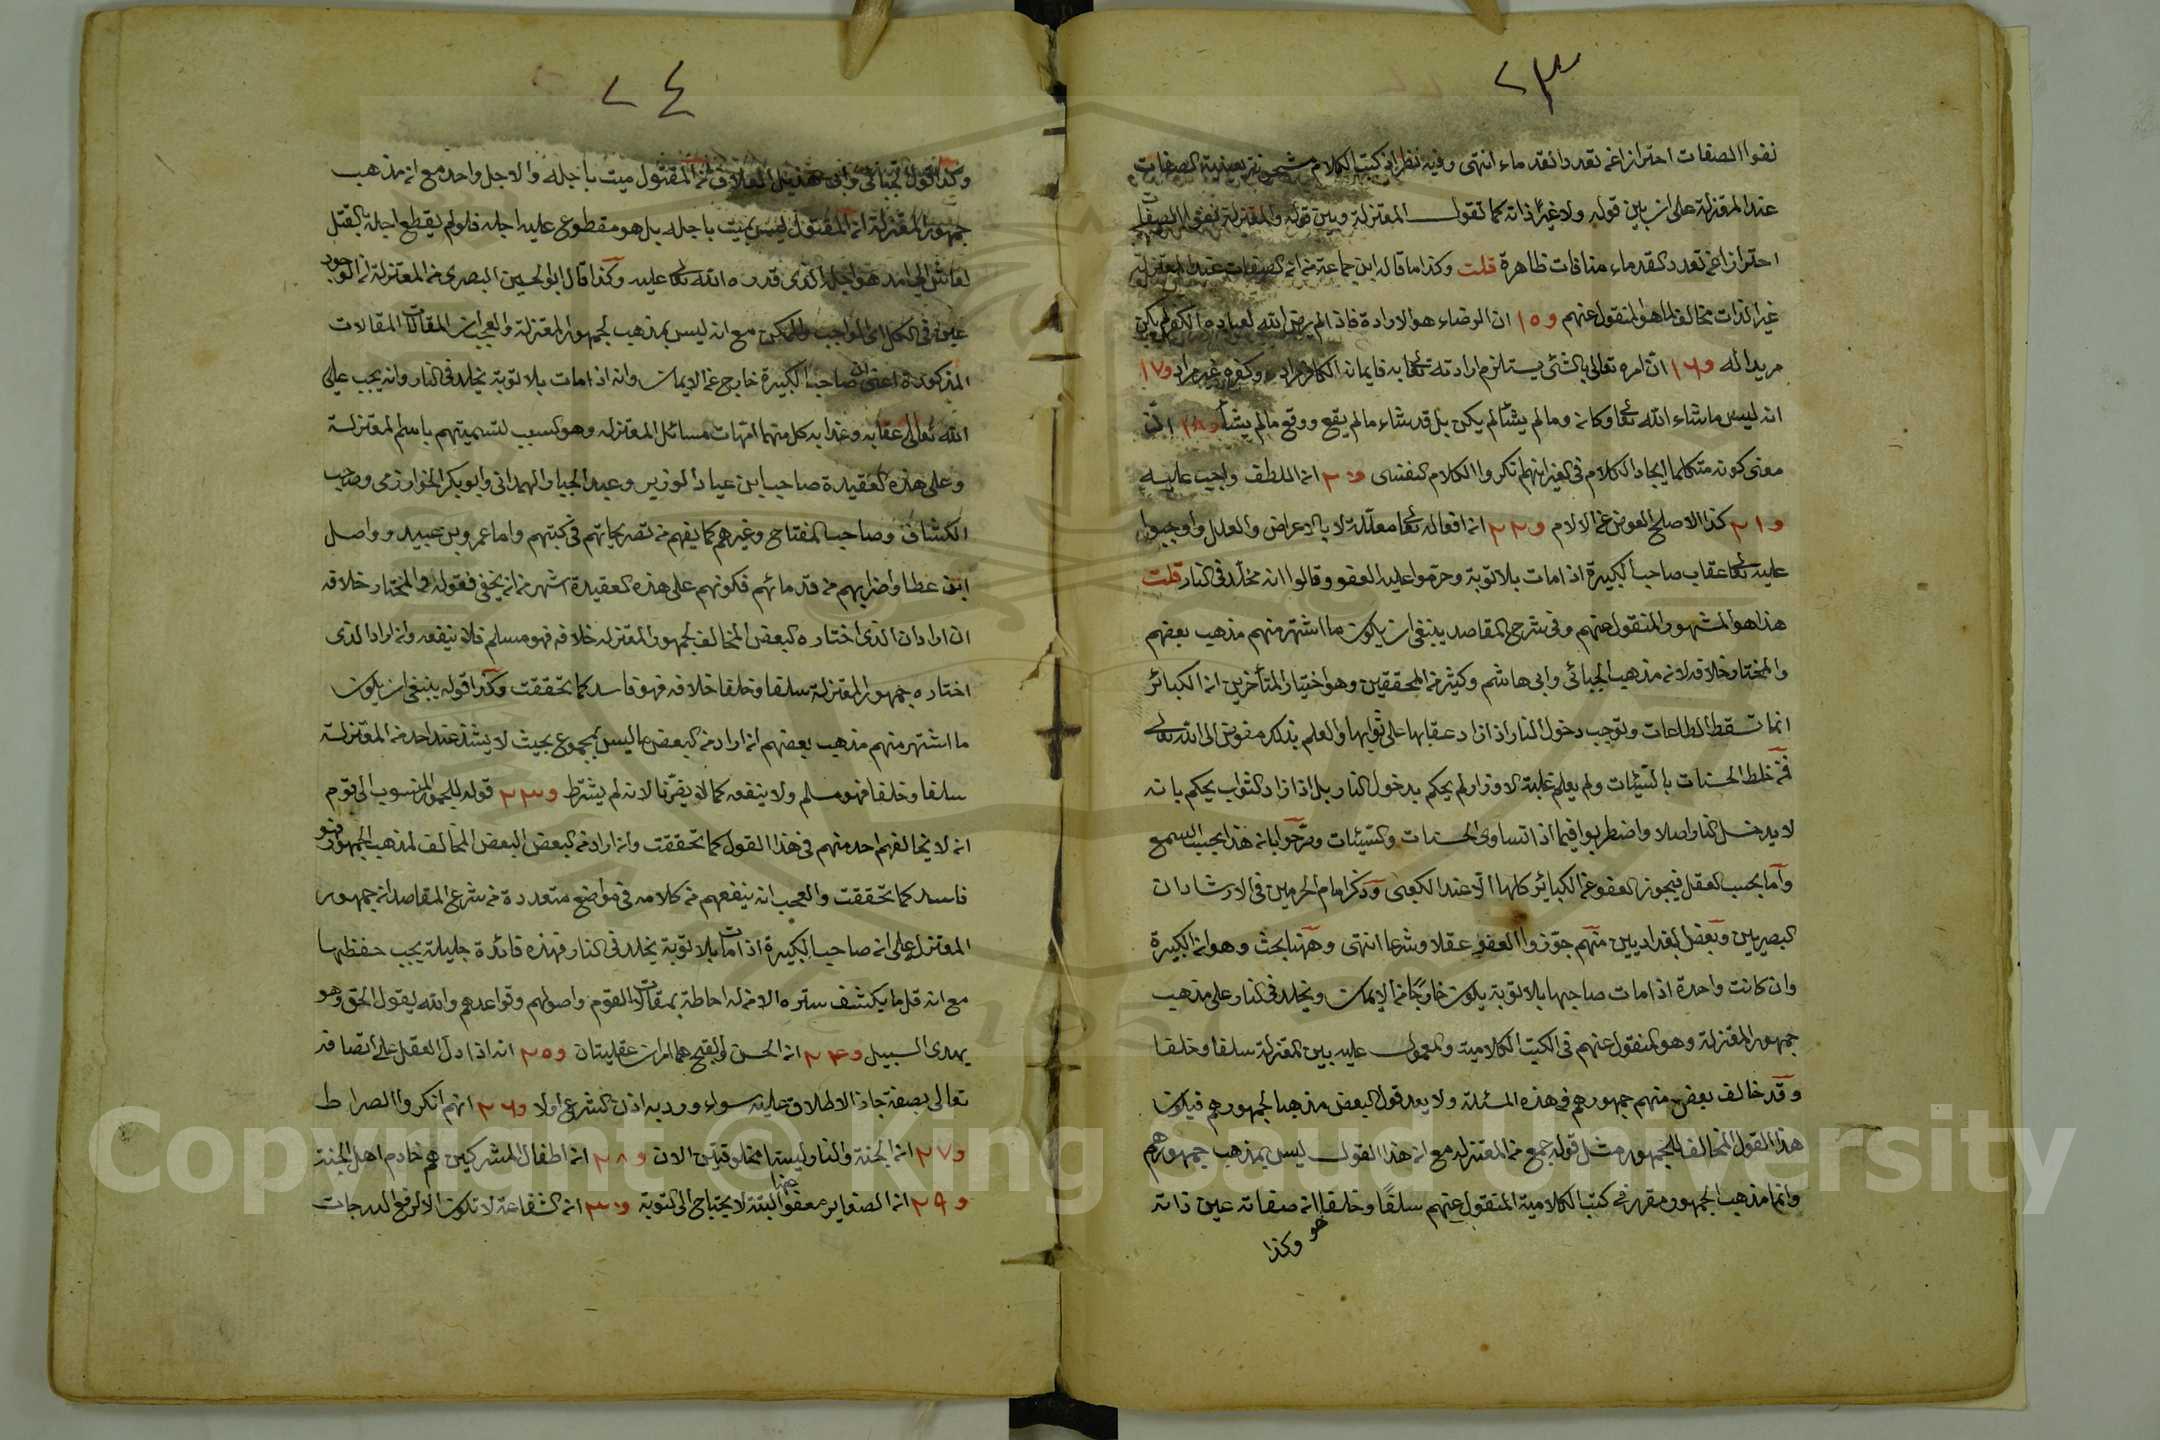 ٢٣
نفوا الصفات احترازا عن تعدد القدماء انتهى وفيه نظر اذ كتب الكلام مشحونة بعينية الصفات
عند المعتزلة على ان بين قوله ولا غير ذاته كما تقول المعتزلة وبين قوله والمعتزلة نفوا الصفات
احترازا عن تعدد القدماء منافات ظاهرة قلت وكذا ما قاله ابن جماعة من ان الصفات عند المعتزلة
غير الذات مخالف لما هو المنقول عنهم و١٥ ان الرضاء هو الارادة فاذا لم يرض الله لعباده الكفر لم يكن
مريدا له و١٦ ان امره تعالى بالشئ يستلزم ارادته تعالى به فايمان الكافر مراد وكفره غير مراد و١٧
انه ليس ما شاء الله تعالى كان وما لم يشأ لم يكن بل قد شاء ما لم يقع ووقع ما لم يشأ و١٨ ان
معنى كونه متكلما ايجاد الكلام في الغير انهم نكروا الكلام النفسى و٢٠ ان اللطف واجب عليه
و٢١ كذا الاصلح العوض عن الالام و٢٢ ان افعاله تعالى معللة لا بالاعراض والعلل واوجبوا
عليه تعالى عقاب صاحب الكبيرة اذا مات بلا توبة وحرموا عليه العفو وقالوا انه مخلد في النار قلت
هذا هو المشهور المنقول عنهم وفى شرح المقاصد ينبغى ان يكون ما اشتهر منهم مذهب بعضهم
والمختار خلافه لان مذهب الجبائى وابى هاشم وكثير من المحققين وهو اختيار المتأخرين ان الكبائر
انما تسقط الطاعات وتوجب دخول النار اذا زاد عقابها على ثوابها والعلم بذلك مفوض الى الله تعالى
فمن خلط الحسنات بالسيئات ولم يعلم غلبة الاوزار لم يحكم بدخول النار بل اذا زاد الثواب يحكم بانه
لا يدخل النار اصلا واضطربوا فيما اذا تساوى الحسنات والسيئات وصرحوا بان هذا بحسب السمع
واما بحسب العقل فيجوز العفو عن الكبائر كلها الا عند الكعبى وذكر امام الحرمين في الارشاد ان
البصريين وبعض البغداديين منهم جوزوا العفو عقلا وشرعا انتهى وههنا بحث وهو ان الكبيرة
وان كانت واحدة اذا مات صاحبها بلا توبة يكون خارجا من الايمان ويخلد في النار على مذهب
جمهور المعتزلة وهو المنقول عنهم في الكتب الكلامية والمعمول عليه بين المعتزلة سلفا وخلفا
وقد خالف بعض منهم جمهورهم في هذه المسئلة ولا يعد قول البعض مذهبا لجمهورهم فيكون
هذا القول المخالف للجمهور مثل قول جمع من المعتزلة مع ان هذا القول ليس بمذهب جمهورهم
وانما مذهب الجمهور مقرر في كتب الكلامية المنقول عنهم سلفا وخلفا ان صفاته عين ذاته
وكذا
٢٤
وكذا قول الجبائى وابى هذيل العلاف من ان المقتول ميت باجله والاجل واحد مع ان مذهب
جمهور المعتزلة ان المقتول ليس بميت باجله بل هو مقطوع عليه اجله فلو لم يقطع اجله بالقتل
لعاش الى امد هو اجله الذى قدره الله تعالى عليه وكذا قال ابو الحسين البصرى من المعتزلة ان الوجود
عينه في الكل اى الواجب والممكن مع انه ليس بمذهب لجمهور المعتزلة والعجب ان المقالات
المذكورة اعنى ان صاحب الكبيرة خارج عن الايمان وانه اذا مات بلا توبة يخلد في النار وانه يجب على
الله تعالى عقابه وعذابه كل منهما امهات مسائل المعتزله وهو السبب لتسميتهم باسم المعتزلة
وعلى هذه العقيدة صاحب ابن عباد الوزير وعبد الجبار الهمدانى وابو بكر الخوارزمى وصاحب
الكشاف وصاحب المفتاح وغيرهم كما يفهم من تصريحاتهم في كتبهم واما عمرو بن عبيد وواصل
ابن عطا واضرابهم من قدمائهم فكونهم على هذه العقيدة اشهر من ان يخفى فقوله والمختار خلافه
ان اراد ان الذى اختاره البعض المخالف لجمهور المعتزله خلافه فهو مسلم فلا ينفعه وان اراد الذى
اختاره جمهور المعتزلة سلفا وخلفا خلافه فهو فاسد كما تحققت وكذا قوله ينبغى ان يكون
ما اشتهر منهم مذهب بعضهم ان اراد من البعض ما ليس بمجموع بحيث لا يشذ عند احد من المعتزلة
سلفا وخلفا فهو مسلم ولا ينفعه كما لا يضرنا لانه لم يشترط و٢٣ قوله للجمهور المنسوب الى قوم
انه لا يخالفهم احد منهم في هذا القول كما تحققت وان اراد من البعض البعض المخالف لمذهب الجمهور فهو
فاسد كما تحققت والعجب انه ينفعهم من كلامه في مواضع متعددة من شرح المقاصد ان جمهور
المعتزلة على ان صاحب الكبيرة اذا مات بلا توبة يخلد في النار فهذه فائدة جليلة يجب حفظها
مع انه قل ما يكشف ستره الا من له احاطة بمقالات القوم واصولهم وقواعدهم والله يقول الحق وهو
يهدى السبيل و٢٤ ان الحسن والقبح هما امران عقليتان و٢٥ انه اذا دل العقل على اتصافه
تعالى بصفة جاز الاطلاق عليه سواء ورد به اذن الشرع اولا و٢٦ انهم انكروا الصراط
و٢٧ ان الجنة والنار ليستا مخلوقتين الان و٢٨ ان اطفال المشركين هم خادم اهل الجنة
و٢٩ ان الصغاير معفو عنها البتة لا يحتاج الى التوبة و٣٠ ان الشفاعة لا تكون الا لرفع الدرجات
Copyright © King Saud University
1957